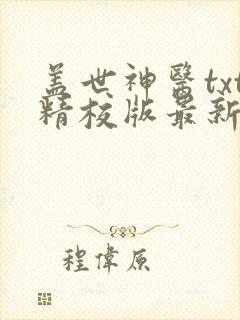 盖世神醫txt
精校版最新
程偉原